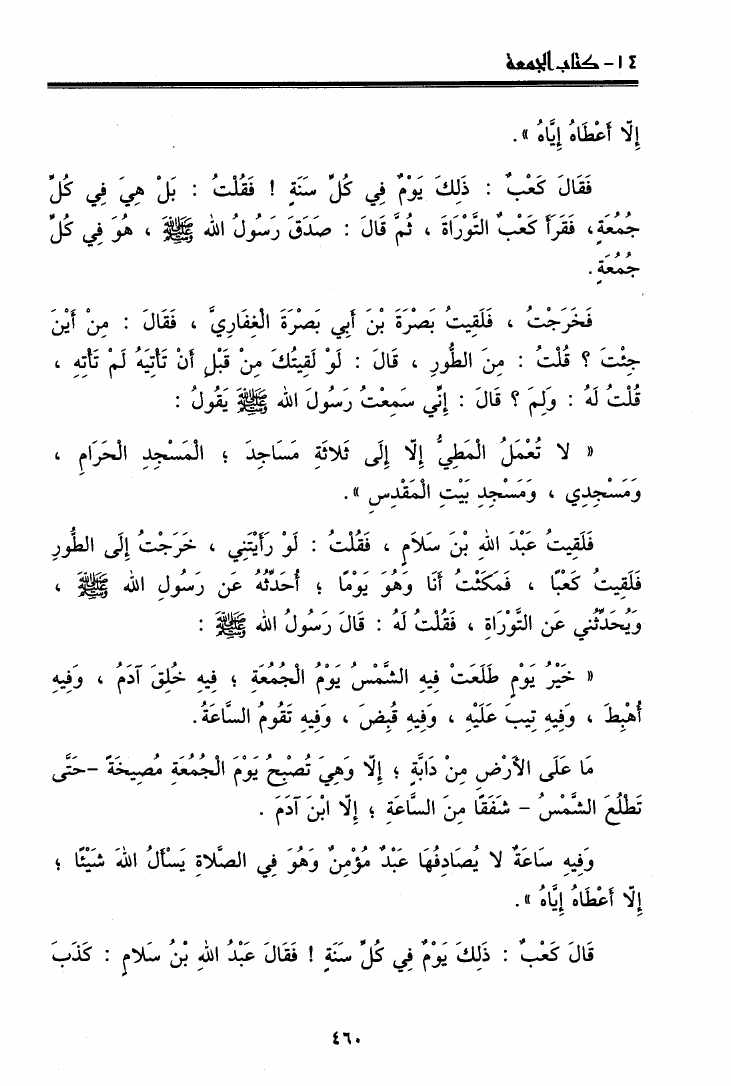 ١٤ - كتاب الجمعة
إِلَّا أَعْطَاهُ إِيَّاهُ » .
فَقَالَ كَعْبٌ : ذَلِكَ يَوْمٌ فِي كُلِّ سَنَةٍ ! فَقُلْتُ : بَلْ هِيَ فِي كُلِّ
جُمُعَةٍ، فَقَرَأَ كَعْبٌ التَّوْرَاةَ ، ثُمَّ قَالَ : صَدَقَ رَسُولُ الله ﷺ ، هُوَ فِي كُلِّ
جُمُعَةٍ .
فَخَرَجْتُ ، فَلَقِيتُ بَصْرَةَ بْنَ أَبِي بَصْرَةَ الْغِفَارِيَّ ، فَقَالَ : مِنْ أَيْنَ
جِئْتَ ؟ قُلْتُ : مِنَ الطُّورِ ، قَالَ : لَوْ لَقِيتُكَ مِنْ قَبْلِ أَنْ تَأْتِيَهُ لَمْ تَأْتِهِ ،
قُلْتُ لَهُ : وَلِمَ ؟ قَالَ : إِنِّي سَمِعْتُ رَسُولَ الله ﷺ يَقُولُ :
« لا تُعْمَلُ الْمَطِيُّ إِلَّا إِلَى ثَلاثَةِ مَسَاجِدَ ؛ الْمَسْجِدِ الْحَرَامِ ،
وَمَسْجِدِي ، وَمَسْجِدِ بَيْتِ الْمَقْدِسِ » .
فَلَقِيتُ عَبْدَ اللهِ بْنَ سَلَامٍ ، فَقُلْتُ : لَوْ رَأَيْتَنِي ، خَرَجْتُ إِلَى الطُّورِ
فَلَقِيتُ كَعْبًا ، فَمَكَثْتُ أَنَا وَهُوَ يَوْمًا ؛ أُحَدِّثُهُ عَن رَسُولِ الله ﷺ ،
وَيُحَدِّثُنِي عَنِ التَّوْرَاةِ ، فَقُلْتُ لَهُ : قَالَ رَسُولُ الله ﷺ :
« خَيْرُ يَوْمٍ طَلَعَتْ فِيهِ الشَّمْسُ يَوْمُ الْجُمُعَةِ ؛ فِيهِ خُلِقَ آدَمُ ، وَفِيهِ
أُهْبِطَ ، وَفِيهِ تِيبَ عَلَيْهِ ، وَفِيهِ قُبِضَ ، وَفِيهِ تَقُومُ السَّاعَةُ .
مَا عَلَى الأَرْضِ مِنْ دَابَّةٍ ؛ إِلَّا وَهِيَ تُصْبِحُ يَوْمَ الْجُمُعَةِ مُصِيخَةً - حَتَّى
تَطْلُعَ الشَّمْسُ - شَفَقًا مِنَ السَّاعَةِ ؛ إِلَّا ابْنَ آدَمَ .
وَفِيهِ سَاعَةٌ لا يُصَادِفُهَا عَبْدٌ مُؤْمِنٌ وَهُوَ فِي الصَّلاةِ يَسْأَلُ اللهَ شَيْئًا ؛
إِلَّا أَعْطَاهُ إِيَّاهُ » .
قَالَ كَعْبٌ : ذَلِكَ يَوْمٌ فِي كُلِّ سَنَةٍ ! فَقَالَ عَبْدُ اللهِ بْنُ سَلامٍ : كَذَبَ
٤٦٠